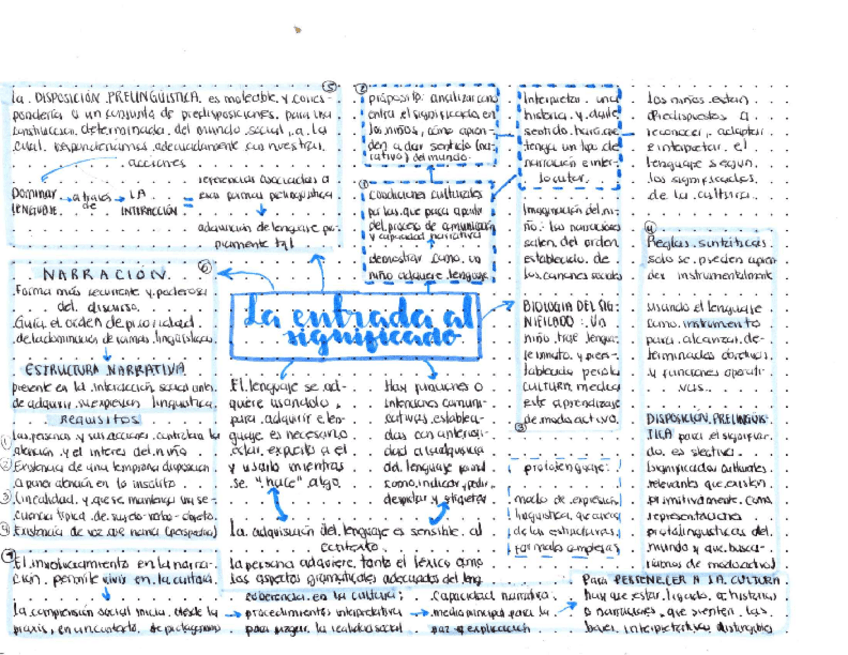 La entrada al
significado
①
Condiciones culturales
por las que pasa a partir
del proceso de comunicación
y capacidad narrativa
demostrar como un
niño adquiere lenguaje
②
propósito: analizar como
entra el significado en
los niños, cómo apren-
den a dar sentido (na-
rrativo) del mundo.
Interpretar una
historia y darle
sentido hará que
tenga un tipo de
narración e inter-
locutor.
Los niños están
predispuestos a
reconocer, adaptar
e interpretar el
lenguaje según
los significados
de la cultura.
Imaginación del ni-
ño: las narraciones
salen del orden
establecido de
los canones sociales
③
BIOLOGIA DEL SIG-
NIFICADO: Un
niño trae lengua-
je innato y pres-
tablecido pero la
CULTURA medica
este aprendizaje
de modo activo.
protolenguaje:
modo de expresión
linguistica que carece
de las estructuras
formales completas
④
Reglas sintáticas
solo se pueden apren-
der instrumentalmente
usando el lenguaje
como instrumento
para alcanzar de-
terminados objetivos
y funciones operati-
vas.
DISPOSICIÓN PRELINGÜIS-
TICA para el significa-
do, es selectiva.
Significados culturales
relevantes que existen
primitivamente como
representaciones
protolinguisticas del
mundo y que busca-
mos de modo activo
⑤
La DISPOSICIÓN PRELINGUISTICA es moldeable y corres-
pondería a un conjunto de predisposiciones para una
construcción determinada del mundo social, a la
cual respondemos adecuadamente con nuestras
acciones
DOMINAR
LENGUAJE
a través
de
LA
INTERACCIÓN
=
referencias asociadas a
esas formas prelinguistica
adquisición de lenguaje pro-
piamente tal
⑥
NARRACIÓN
Forma más recurrente y poderosa
del discurso.
Guía el orden de prioridad
de la dominación de formas lingüísticas
ESTRUCTURA NARRATIVA
presente en la interacción social antes
de adquirir su expresión linguistica
Requisitos
① Las personas y sus acciones controlan la
atención y el interés del niño
② Existencia de una temprana disposición
a poner atención en lo insólito
③ Linealidad, y que se mantenga una se-
cuencia típica de sujeto-verbo-objeto.
④ Existencia de voz que narra (perspectiva)
El lenguaje se ad-
quiere usandolo,
para adquirir el len-
guaje es necesario
estar expuesto a él
y usarlo mientras
se "hace" algo
Hay funciones o
intenciones comuni-
cativas estableci-
das con anteriori-
dad al
del lenguaje formal
como indicar, pedir,
despistar y etiquetar
La adquisición del lenguaje es sensible al
contexto.
la persona adquiere tanto el léxico como
los aspectos gramaticales adecuados del leng
⑦
El involucramiento en la narra-
ción permite vivir en la cultura
La comprensión social inicia desde la
praxis, en un contexto de protagonismo
coherencia en la cultura:
procedimientos interpretativos
para juzgar la realidad social
Capacidad narrativa:
medio principal para la
paz y explicación
Para PERTENECER A LA CULTURA
hay que estar ligado a historias
o narraciones, que sienten las
bases interpretativas distinguibles